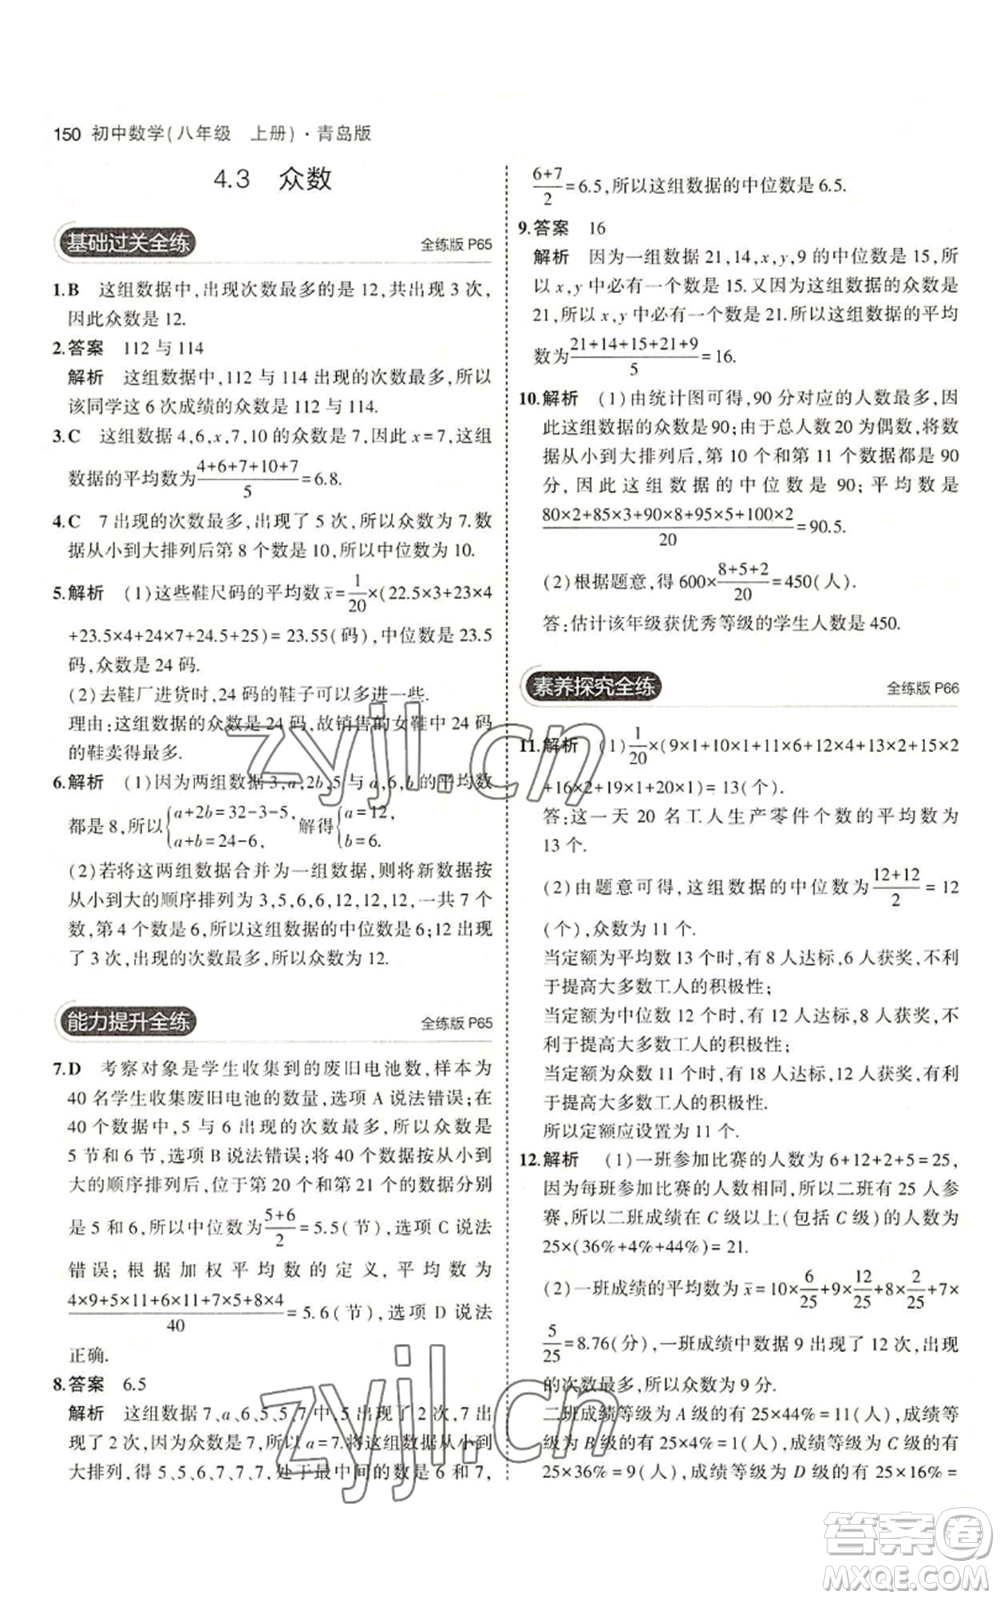 150 初中数学(八年级 上册)·青岛版
4.3 众数
基础过关全练 全练版 P65
1.B 这组数据中,出现次数最多的是 12,共出现 3 次,
因此众数是 12.
2.答案 112 与 114
解析 这组数据中,112 与 114 出现的次数最多,所以
该同学这 6 次成绩的众数是 112 与 114.
3.C 这组数据 4,6,x,7,10 的众数是 7,因此 x=7,这组
数据的平均数为(4+6+7+10+7)/5=6.8.
4.C 7 出现的次数最多,出现了 5 次,所以众数为 7.数
据从小到大排列后第 8 个数是 10,所以中位数为 10.
5.解析 (1)这些鞋尺码的平均数 x̄=1/20×(22.5×3+23×4
+23.5×4+24×7+24.5×1+25×1)=23.55(码),中位数是 23.5
码,众数是 24 码.
(2)去鞋厂进货时,24 码的鞋子可以多进一些.
理由:这组数据的众数是 24 码,故销售的女鞋中 24 码
的鞋卖得最多.
6.解析 (1)因为两组数据 3,a,2b,5 与 a,6,b 的平均数
都是 8,所以{a+2b=32-3-5, a+b=24-6, 解得{a=12, b=6.
(2)若将这两组数据合并为一组数据,则将新数据按
从小到大的顺序排列为 3,5,6,6,12,12,12,一共 7 个
数,第 4 个数是 6,所以这组数据的中位数是 6;12 出现
了 3 次,出现的次数最多,所以众数为 12.
能力提升全练 全练版 P65
7.D 考察对象是学生收集到的废旧电池数,样本为
40 名学生收集废旧电池的数量,选项 A 说法错误;在
40 个数据中,5 与 6 出现的次数最多,所以众数是
5 节和 6 节,选项 B 说法错误;将 40 个数据按从小到
大的顺序排列后,位于第 20 个和第 21 个的数据分别
是 5 和 6,所以中位数为(5+6)/2=5.5(节),选项 C 说法
错误;根据加权平均数的定义,平均数为
(4×9+5×11+6×11+7×5+8×4)/40=5.6(节),选项 D 说法
正确.
8.答案 6.5
解析 这组数据 7,a,6,5,5,7 中 5 出现了 2 次,7 出现
了 2 次,因为众数是 7,所以 a=7.将这组数据从小到
大排列,得 5,5,6,7,7,7,处于最中间的数是 6 和 7,
(6+7)/2=6.5,所以这组数据的中位数是 6.5.
9.答案 16
解析 因为一组数据 21,14,x,y,9 的中位数是 15,所
以 x,y 中必有一个数是 15.又因为这组数据的众数是
21,所以 x,y 中必有一个数是 21.所以这组数据的平均
数为(21+14+15+21+9)/5=16.
10.解析 (1)由统计图可得,90 分对应的人数最多,因
此这组数据的众数是 90;由于总人数 20 为偶数,将数
据从小到大排列后,第 10 个和第 11 个数据都是 90
分,因此这组数据的中位数是 90;平均数是
(80×2+85×3+90×8+95×5+100×2)/20=90.5.
(2)根据题意,得 600×(8+5+2)/20=450(人).
答:估计该年级获优秀等级的学生人数是 450.
素养探究全练 全练版 P66
11.解析 (1)1/20×(9×1+10×1+11×6+12×4+13×2+15×2
+16×2+19×1+20×1)=13(个).
答:这一天 20 名工人生产零件个数的平均数为
13 个.
(2)由题意可得,这组数据的中位数为(12+12)/2=12
(个),众数为 11 个.
当定额为平均数 13 个时,有 8 人达标,6 人获奖,不利
于提高大多数工人的积极性;
当定额为中位数 12 个时,有 12 人达标,8 人获奖,不
利于提高大多数工人的积极性;
当定额为众数 11 个时,有 18 人达标,12 人获奖,有利
于提高大多数工人的积极性.
所以定额应设置为 11 个.
12.解析 (1)一班参加比赛的人数为 6+12+2+5=25,
因为每班参加比赛的人数相同,所以二班有 25 人参
赛,所以二班成绩在 C 级以上(包括 C 级)的人数为
25×(36%+4%+44%)=21.
(2)一班成绩的平均数为 x̄=10×6/25+9×12/25+8×2/25+7×
5/25=8.76(分),一班成绩中数据 9 出现了 12 次,出现
的次数最多,所以众数为 9 分.
二班成绩等级为 A 级的有 25×44%=11(人),成绩等
级为 B 级的有 25×4%=1(人),成绩等级为 C 级的有
25×36%=9(人),成绩等级为 D 级的有 25×16%=
zyjl.cn
zyjl.cn
答案卷
MXQE.COM